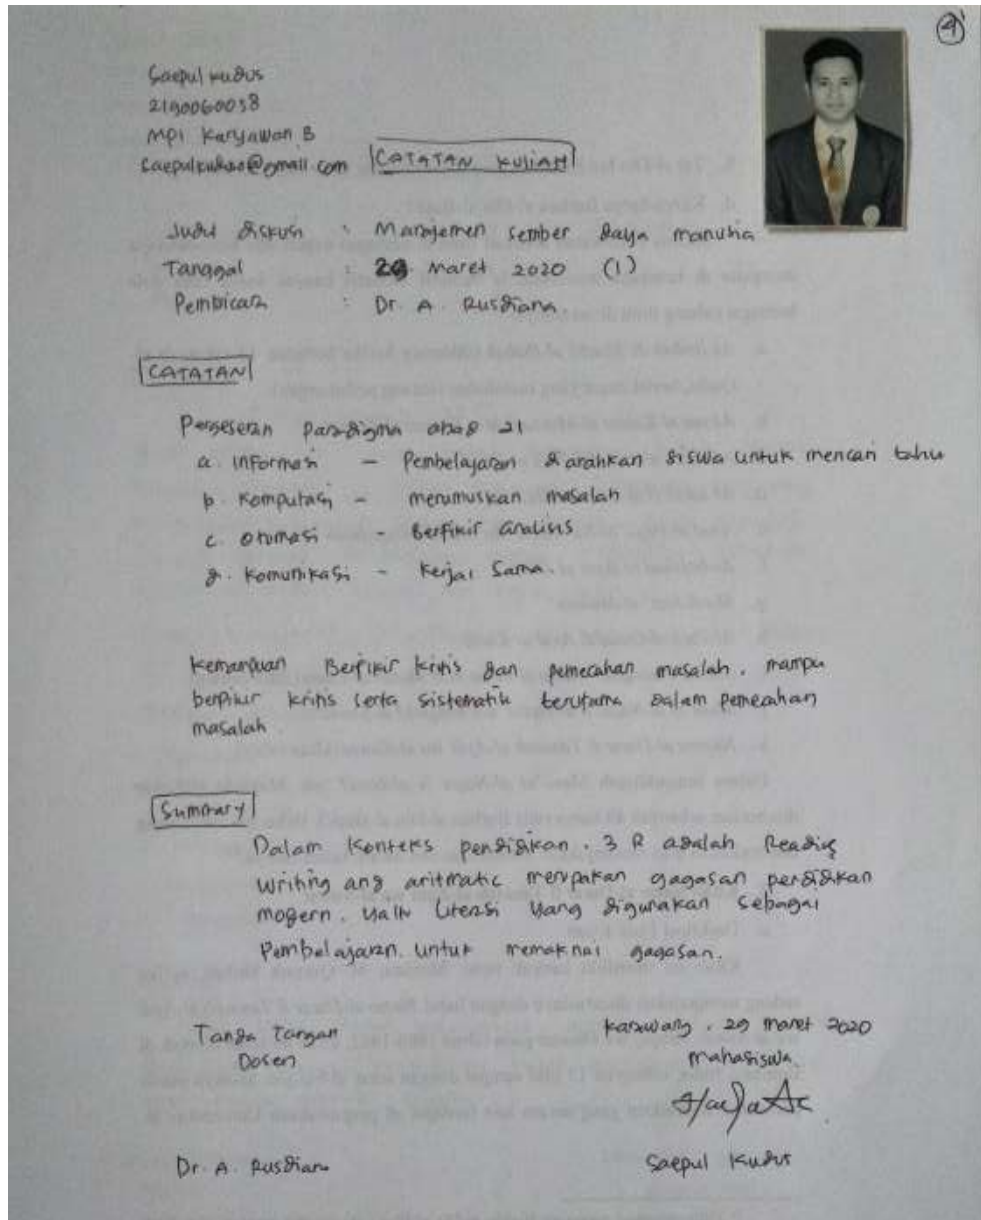 4
Saepul kudus
2190060038
MPI Karyawan B
Saepulkudus@gmail.com
CATATAN KULIAH
Judul diskusi : Manajemen sember daya manusia
Tanggal : 29 Maret 2020 (1)
Pembicara : Dr. A. Rusdiana
CATATAN
Pergeseran paradigma abad 21
a. Informasi – Pembelajaran diarahkan siswa untuk mencari tahu
b. Komputasi – merumuskan masalah
c. Otomasi – Berfikir analisis
d. Komunikasi – Kerjai Sama.
Kemampuan Berfikir kritis dan pemecahan masalah. mampu
berpikir kritis serta sistematik terutama dalam pemecahan
masalah
Summary
Dalam Konteks pendidikan. 3 R adalah Reading
Writing ang aritmatic merupakan gagasan pendidikan
modern. Yaitu Literasi yang digunakan sebagai
Pembelajaran. untuk memaknai gagasan.
Tanda Tangan
Dosen
Karawang, 29 Maret 2020
Mahasiswa
Dr. A. Rusdiana
Saepul Kudus